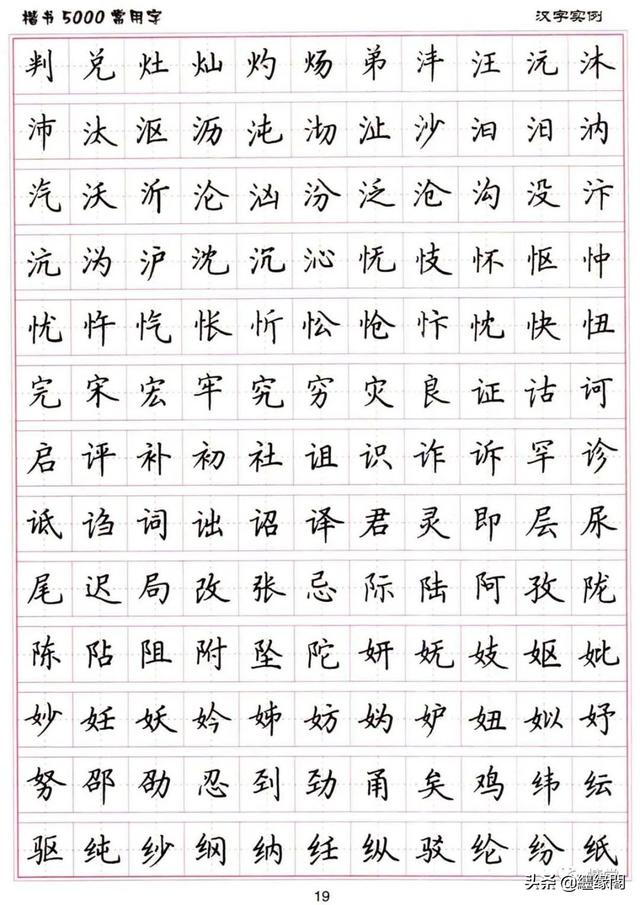 楷书5000常用字 汉字实例
判兑灶灿灼炀弟沣汪沅沐
沛汰沤沥沌沏沚沙汩汨汭
汽沃沂沦汹汾泛沧沟没汴
沆沩沪沈沉沁怃忮怀怄忡
忧忤忾怅忻忪怆忭忱快忸
完宋宏牢究穷灾良证诂诃
启评补初社诅识诈诉罕诊
诋诌词诎诏译君灵即层尿
尾迟局改张忌际陆阿孜陇
陈阽阻附坠陀妍妩妓妪妣
妙妊妖妗姊妨妫妒妞姒妤
努邵劭忍刭劲甬矣鸡纬纭
驱纯纱纲纳纴纵驳纶纷纸
19
头条 @繼缘閣